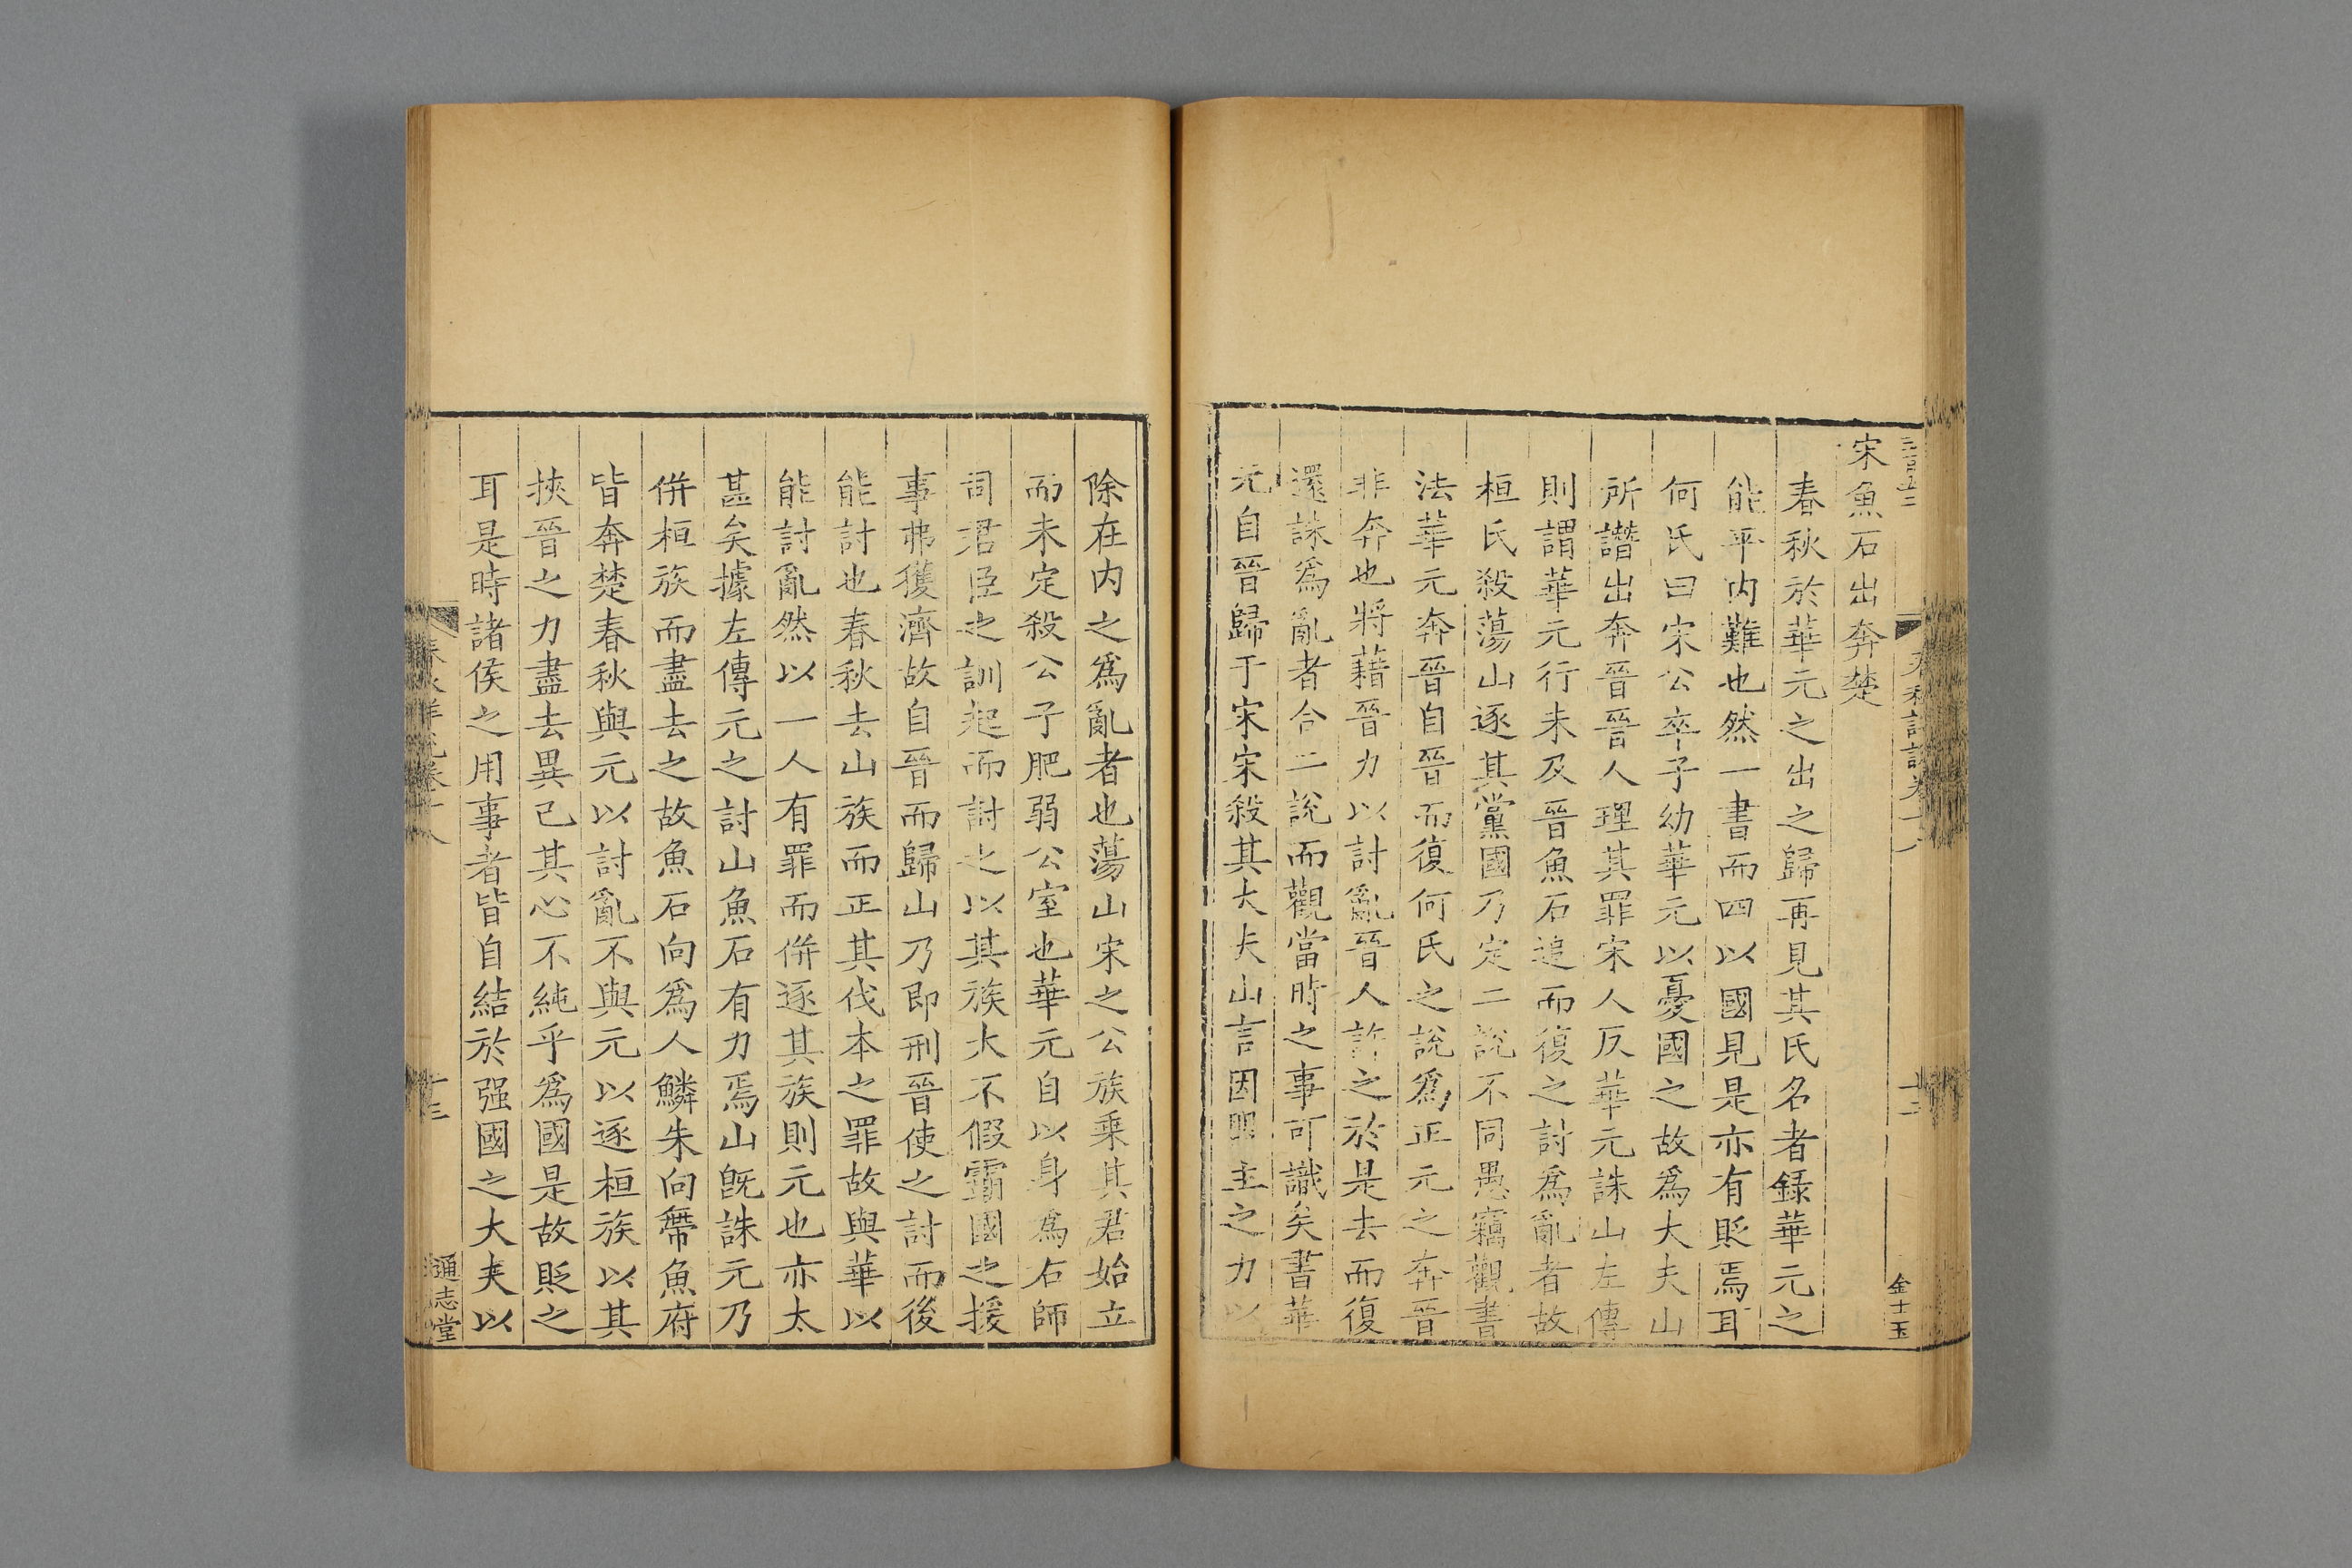 宋魚石出奔楚
春秋於華元之出之歸再見其氏名者録華元之
能平内難也然一書而四以國見是亦有貶焉耳
何氏曰宋公卒子幼華元以憂國之故爲大夫山
所譖出奔晉晉人理其罪宋人反華元誅山左傳
則謂華元行未及晉魚石追而復之討爲亂者故
桓氏殺蕩山逐其黨國乃定二說不同愚竊觀書
法華元奔晉自晉而復何氏之說爲正元之奔晉
非奔也將藉晉力以討亂晉人許之於是去而復
還誅爲亂者合二說而觀當時之事可識矣書華
元自晉歸于宋宋殺其大夫山言因盟主之力以
除在内之爲亂者也蕩山宋之公族乘其君始立
而未定殺公子肥弱公室也華元自以身爲右師
司君臣之訓起而討之以其族大不假霸國之援
事弗獲濟故自晉而歸山乃即刑晉使之討而後
能討也春秋去山族而正其伐本之罪故與華以
能討亂然以一人有罪而併逐其族則元也亦太
甚矣據左傳元之討山魚石有力焉山既誅元乃
併桓族而盡去之故魚石向爲人鱗朱向帶魚府
皆奔楚春秋與元以討亂不與元以逐桓族以其
挾晉之力盡去異己其心不純乎爲國是故貶之
耳是時諸侯之用事者皆自結於强國之大夫以
春秋詳說卷十八
十三
通志堂
金士玉